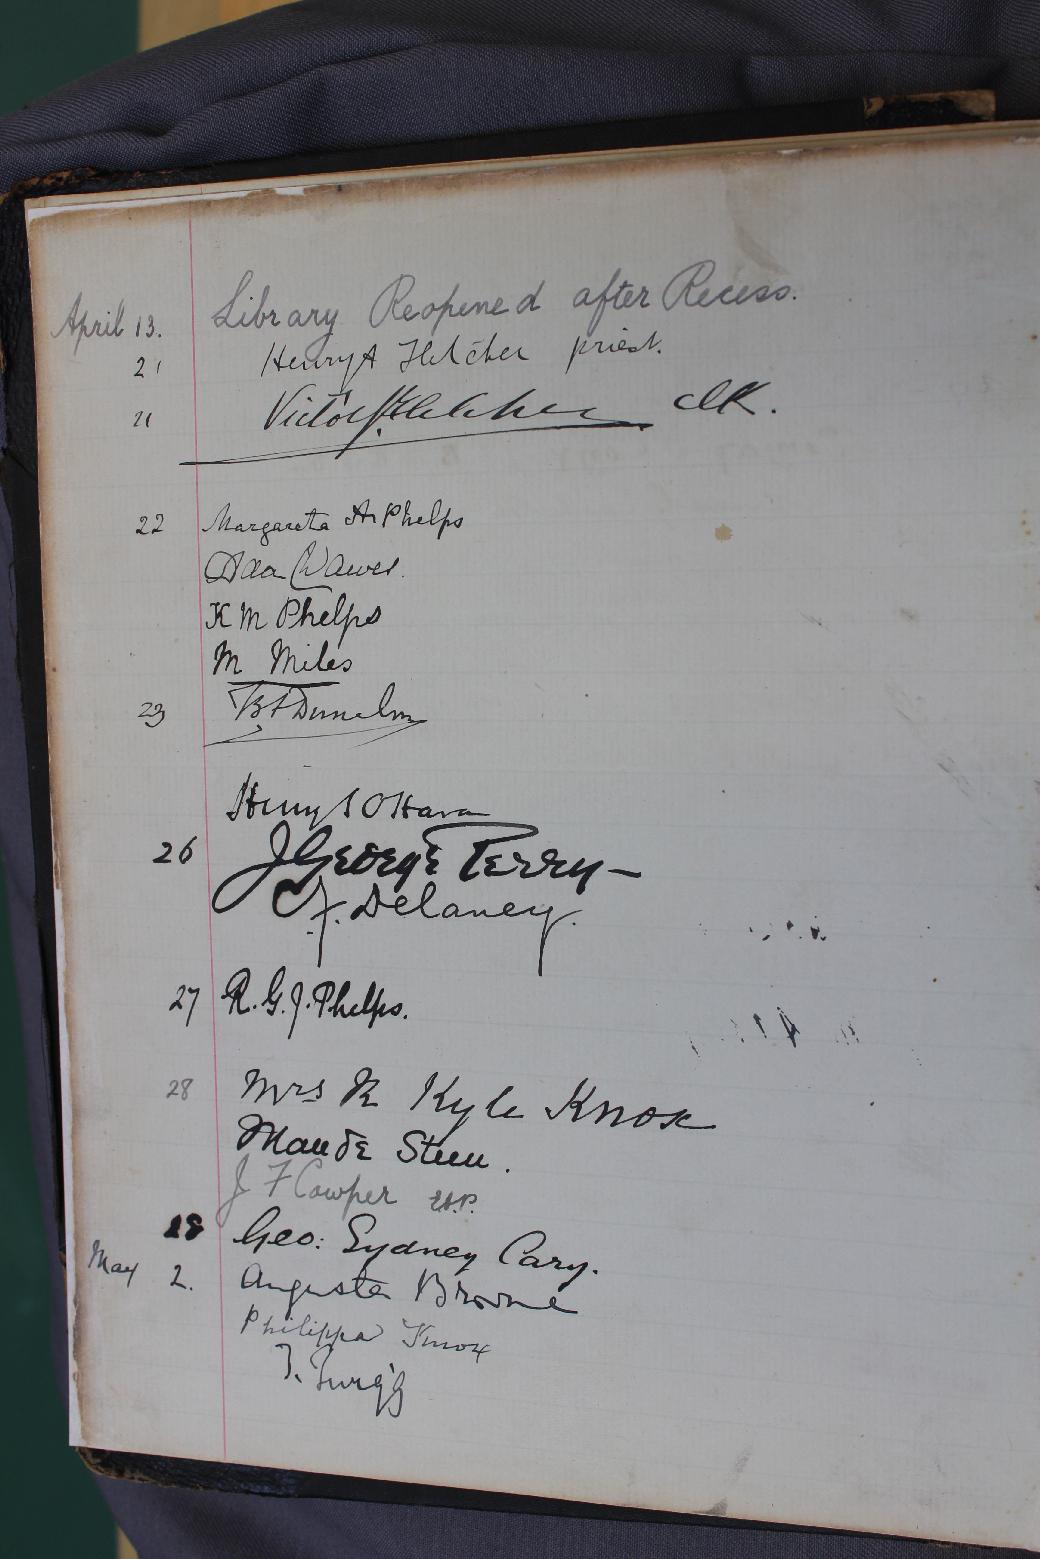 April 13. Library Reopened after Recess.
21 Henry A Fletcher priest.
21 Victor Fletcher clk.
22 Margareta A Phelps
Ada Wawes.
K M Phelps
M Miles
23
Henry S O'Hara
26 J George Perry
F. Delaney.
27 R. G. J. Phelps.
28 Mrs R Kyle Knox
Maude Steen.
J F Cowper
28 Geo: Sydney Cary.
May 2. Augusta Browne
Philippa Knox
J. Twigg